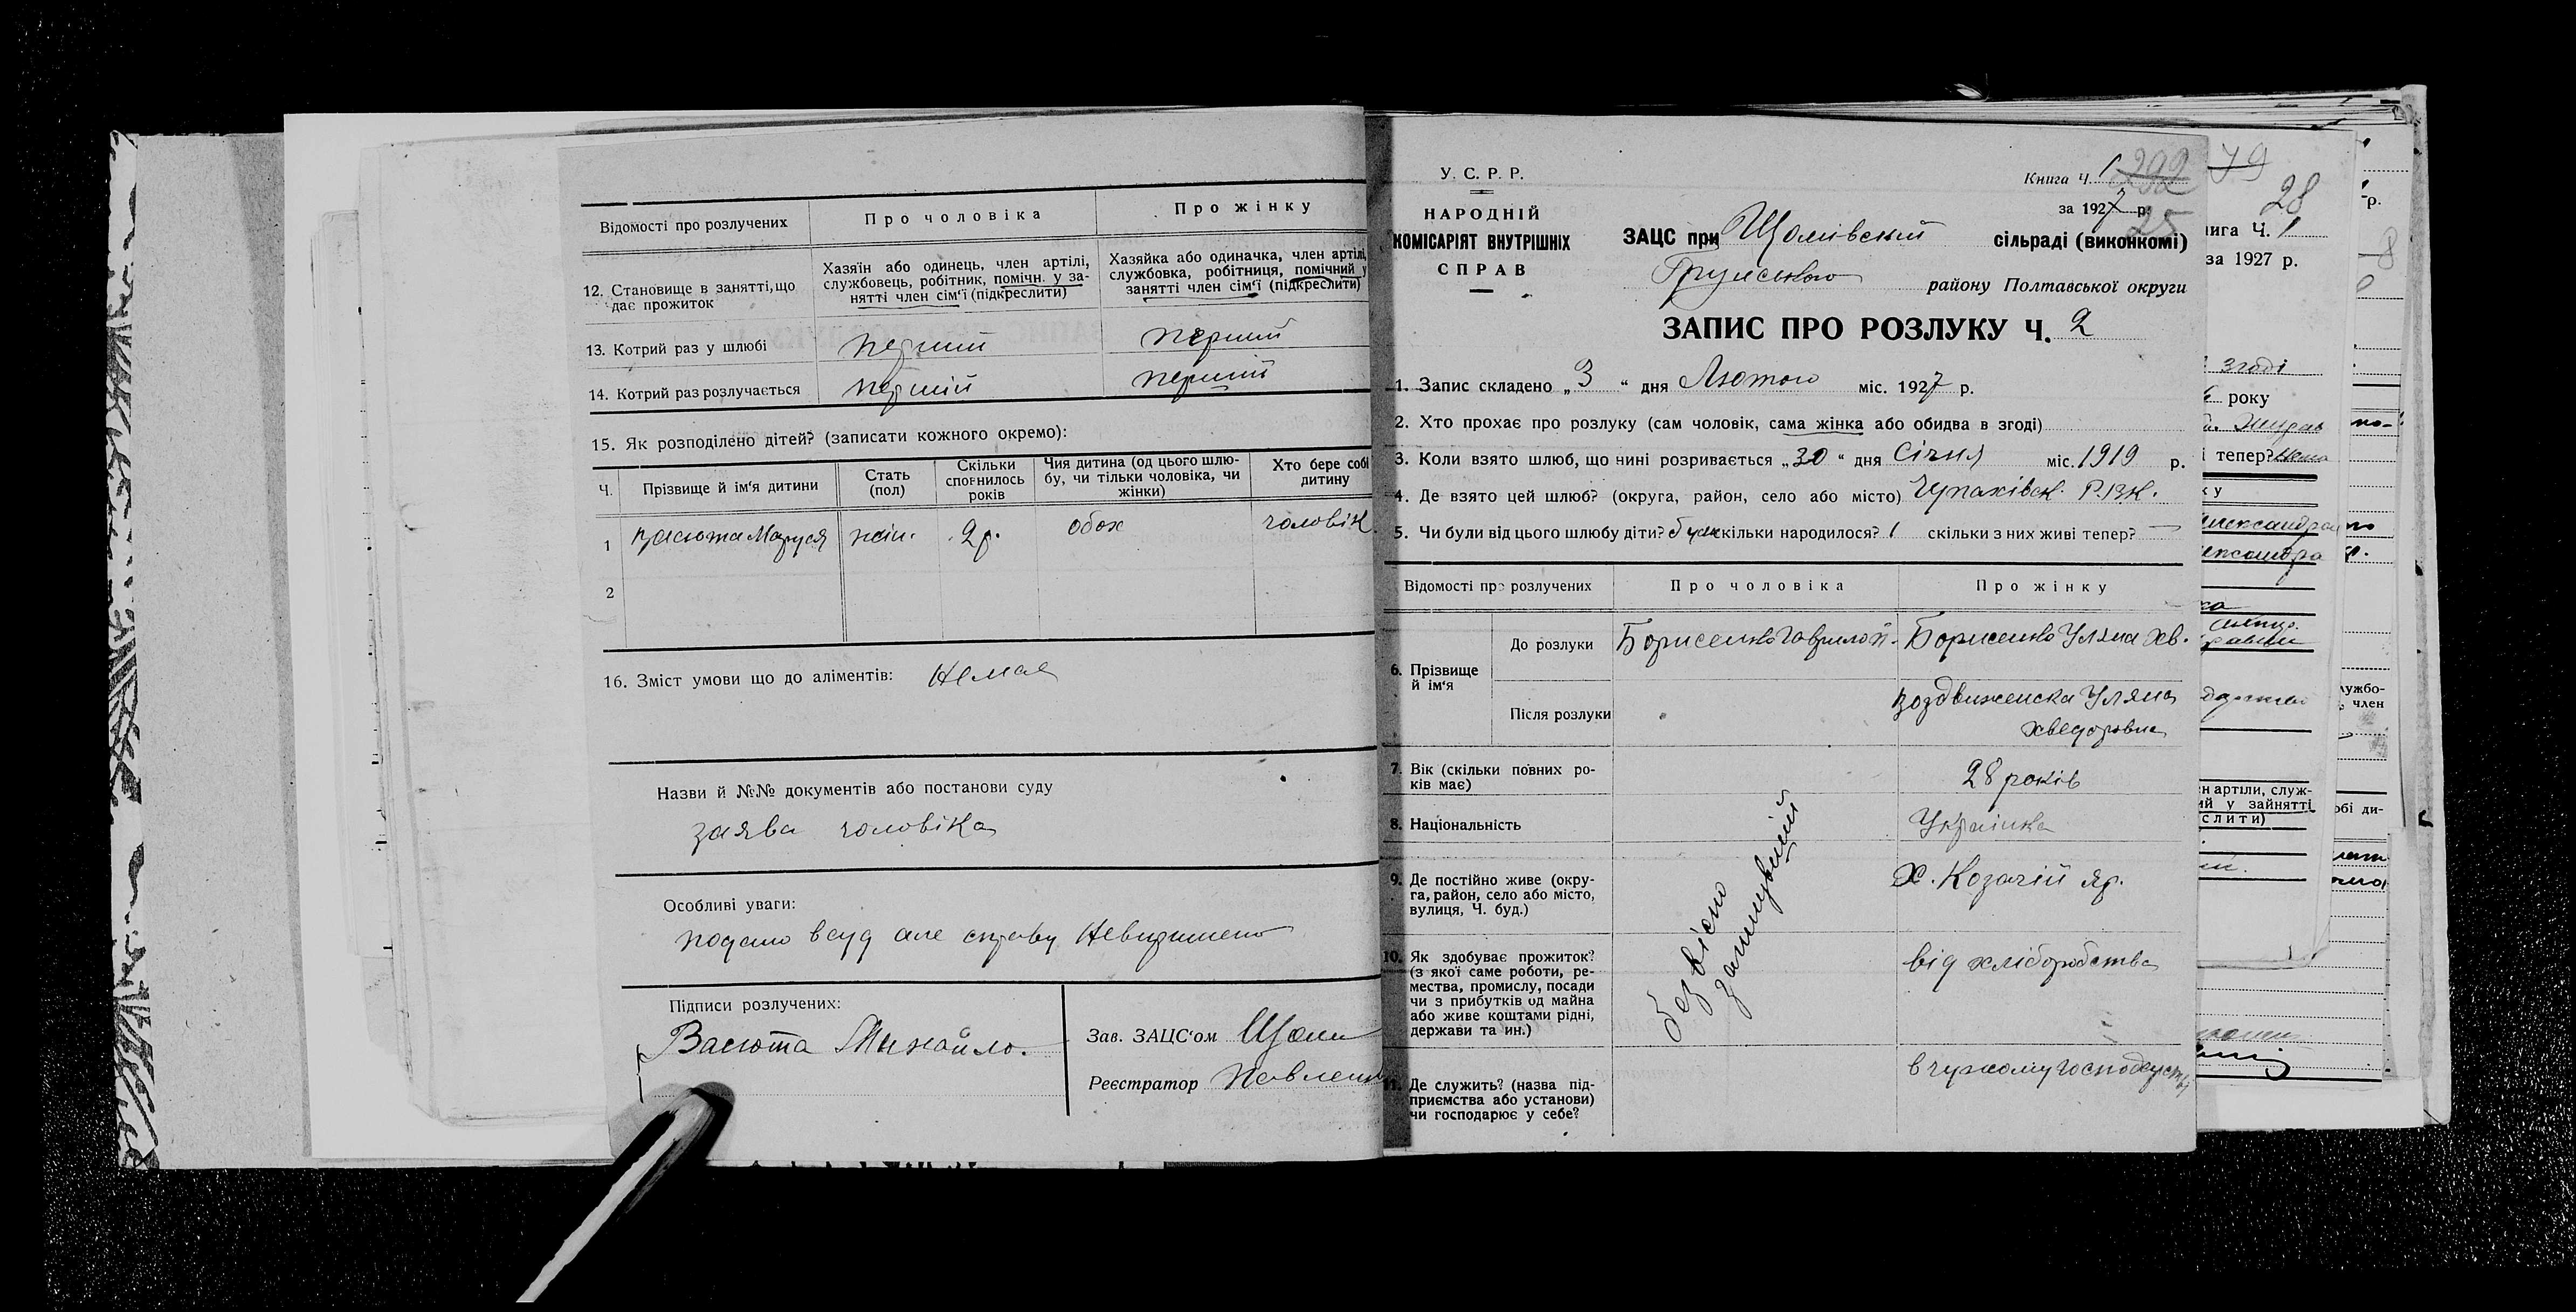 Відомості про розлучених
Про чоловіка
Про жінку
12. Становище в занятті, що дає прожиток
Хазяїн або одинець, член артілі, службовець, робітник, помічн. у занятті член сім'ї (підкреслити)
Хазяйка або одиначка, член артілі, службовка, робітниця, помічний у занятті член сім'ї (підкреслити)
13. Котрий раз у шлюбі
перший
перший
14. Котрий раз розлучається
перший
перший
15. Як розподілено дітей? (записати кожного окремо):
Ч.
Прізвище й ім'я дитини
Стать (пол)
Скільки сповнилось років
Чия дитина (од цього шлюбу, чи тільки чоловіка, чи жінки)
Хто бере собі дитину
1
Васюта Маруся
жін.
2 р.
обох
чоловік
2
16. Зміст умови що до аліментів: Немає
Назви й №№ документів або постанови суду
заява чоловіка
Особливі уваги:
подано в суд але справу невирішено
Підписи розлучених:
Васюта Михайло.
Зав. ЗАЦС'ом
Реєстратор
У. С. Р. Р.
НАРОДНІЙ
КОМІСАРІЯТ ВНУТРІШНІХ
СПРАВ
Книга Ч. 1
292
за 1927 р.
25
ЗАЦС при сільраді (виконкомі)
району Полтавської округи
ЗАПИС ПРО РОЗЛУКУ Ч. 2
1. Запис складено „3“ дня Лютого міс. 1927 р.
2. Хто прохає про розлуку (сам чоловік, сама жінка або обидва в згоді)
3. Коли взято шлюб, що нині розривається „30“ дня Січня міс. 1919 р.
4. Де взято цей шлюб? (округа, район, село або місто)
5. Чи були від цього шлюбу діти? були скільки народилося? 1 скільки з них живі тепер? —
Відомості про розлучених
Про чоловіка
Про жінку
6. Прізвище й ім'я
До розлуки
Борисенко Гаврило
Борисенко Уляна Хв.
Після розлуки
Воздвиженска Уляна
Хведоровна
7. Вік (скільки повних років має)
28 років
8. Національність
Українка
9. Де постійно живе (округа, район, село або місто, вулиця, Ч. буд.)
Х. Козачій яр.
безвісно
10. Як здобуває прожиток? (з якої саме роботи, ремества, промислу, посади чи з прибутків од майна або живе коштами рідні, держави та ин.)
від хліборобства
11. Де служить? (назва підприємства або установи) чи господарює у себе?
в чужому господарстві
79
28
нига Ч. 1
за 1927 р.
згоді
року
тепер?